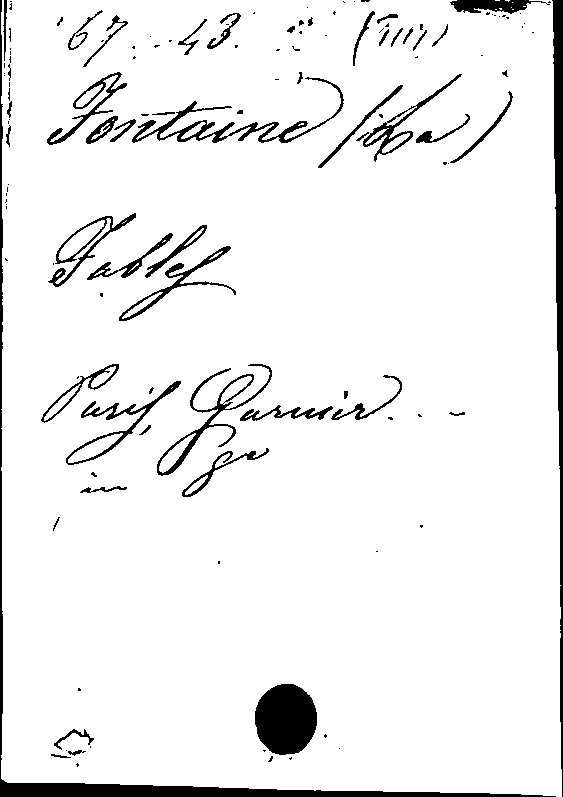 67 43
Fontaine (La)
Fables
Paris, Garnier
in 8º